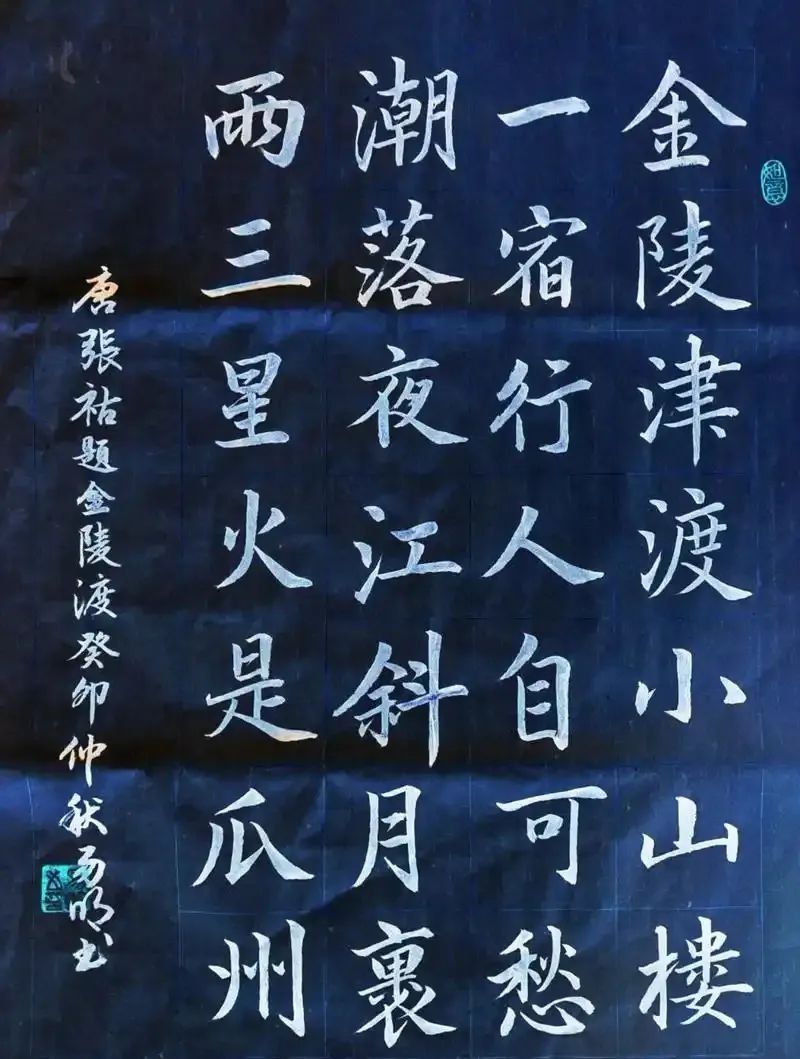 金陵津渡小山樓
一宿行人自可愁
潮落夜江斜月裏
兩三星火是瓜州
唐張祜題金陵渡癸卯仲秋明书
如意